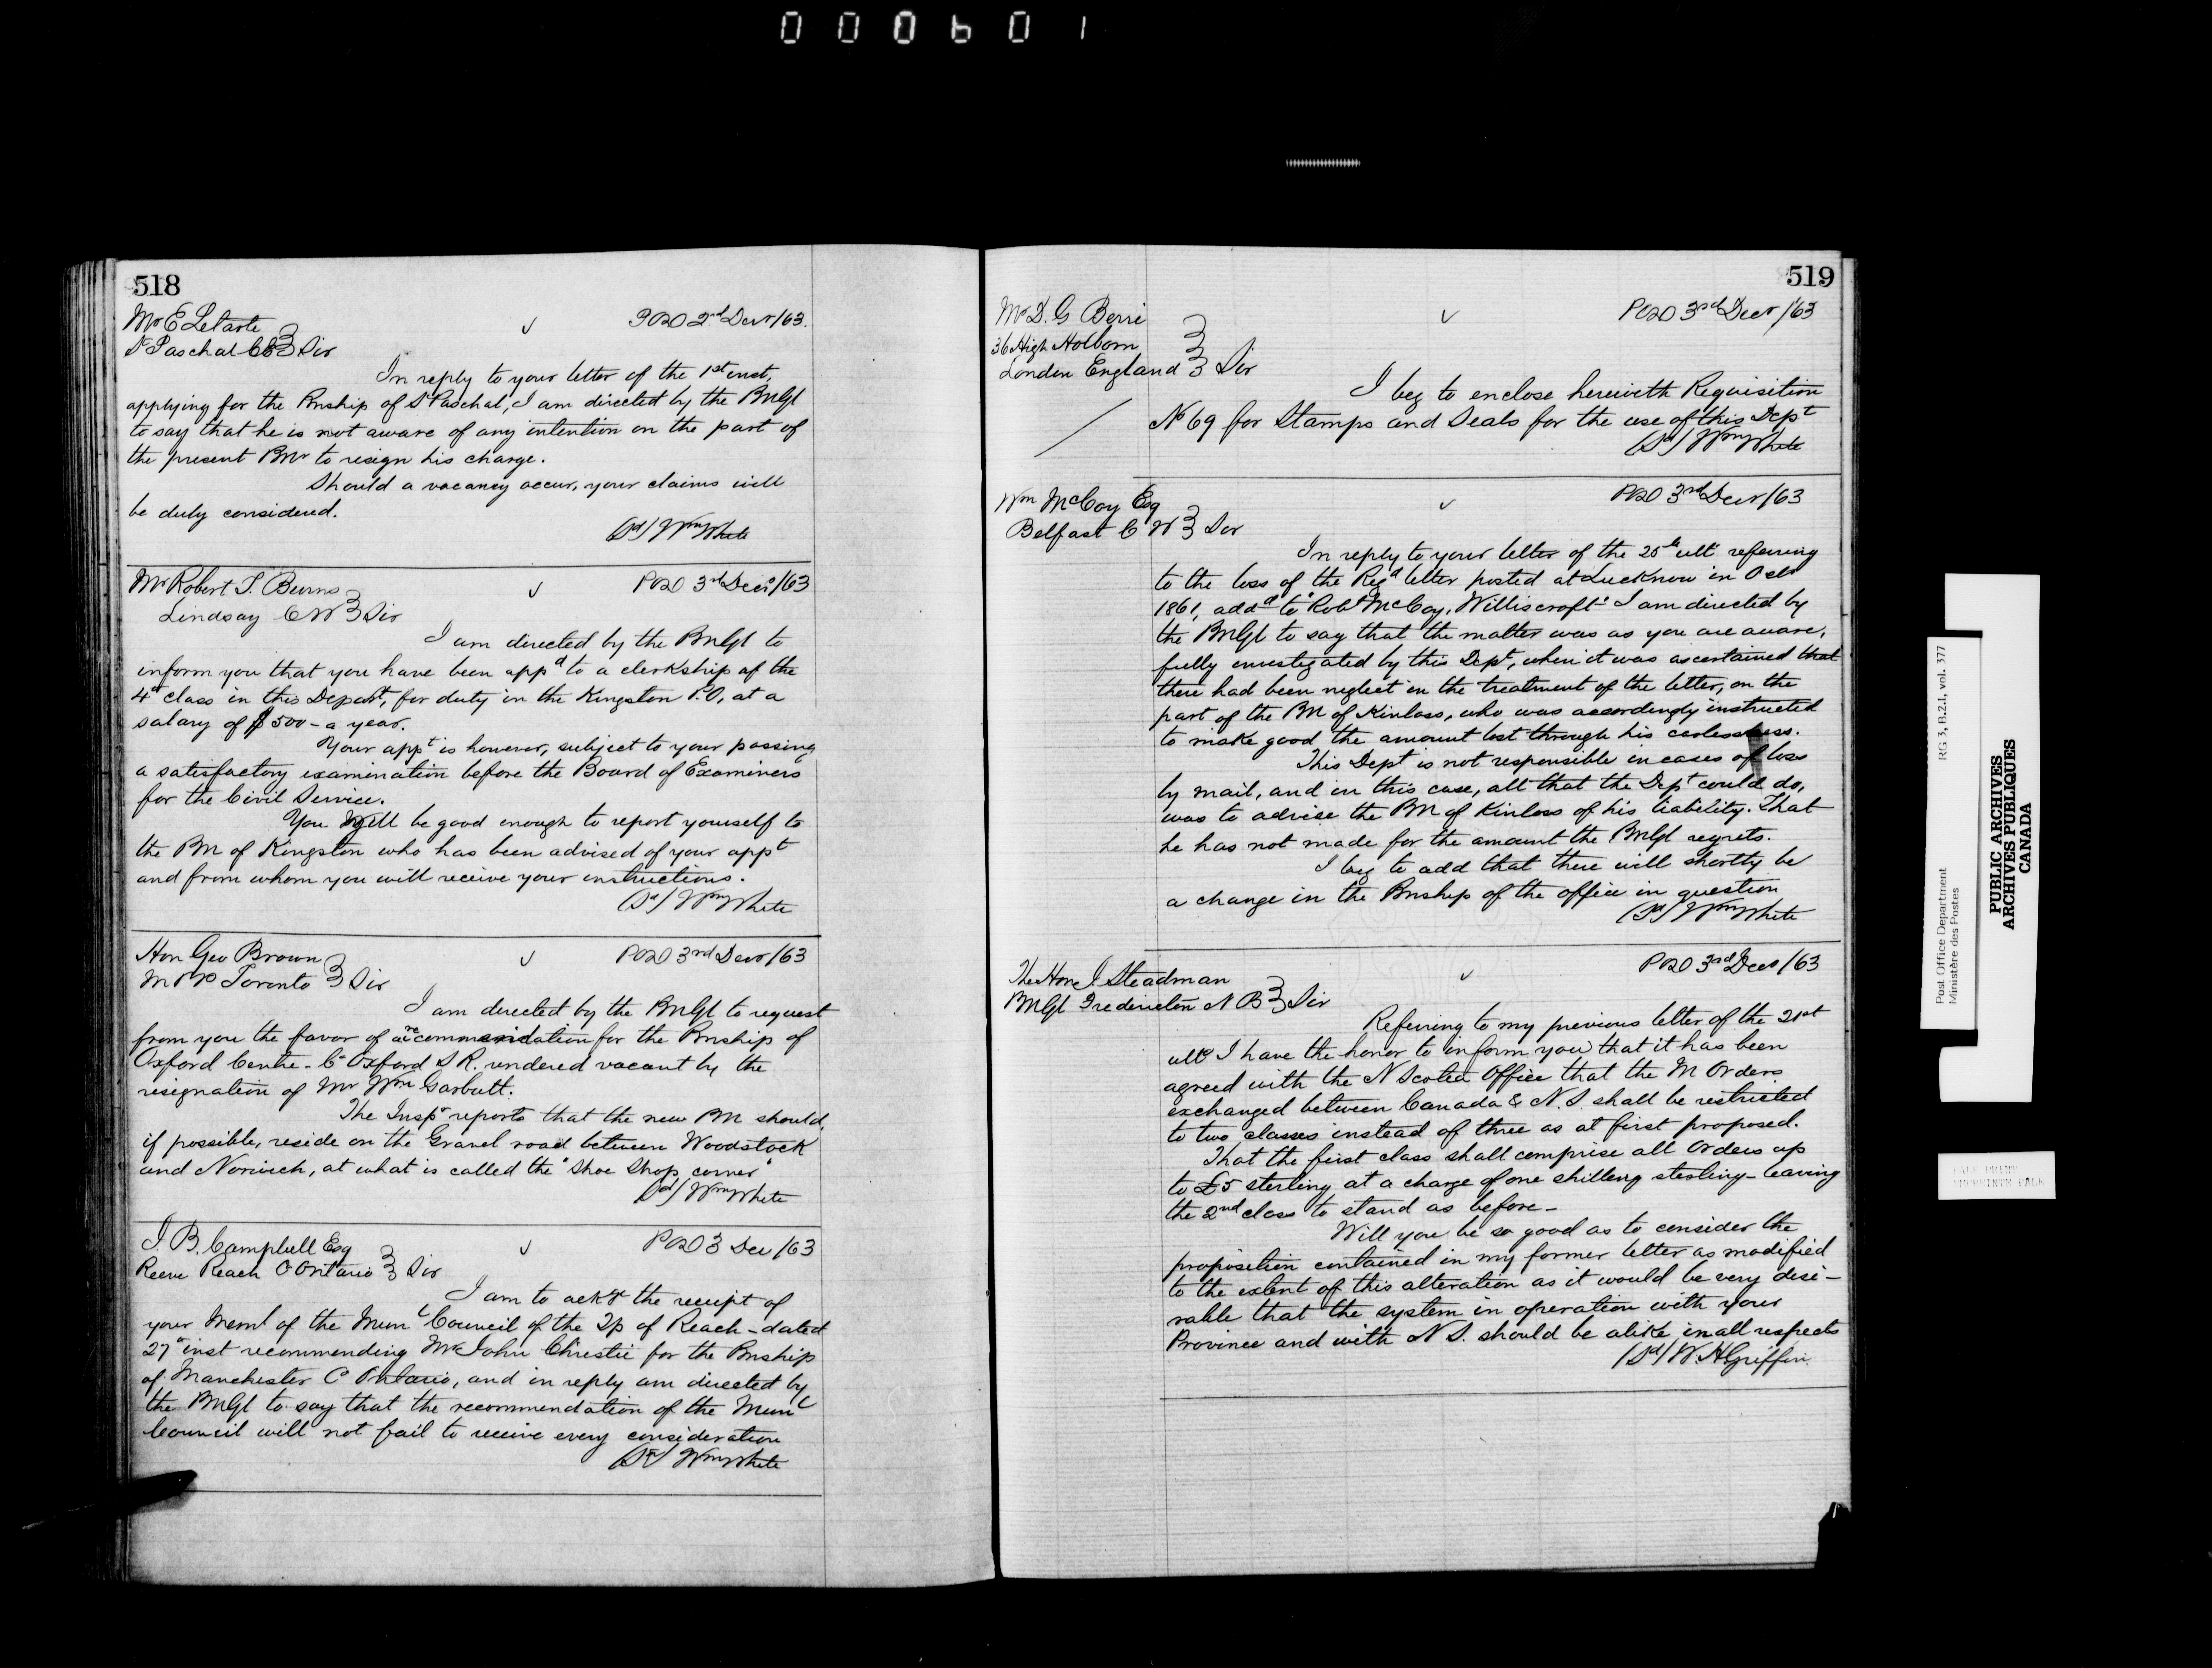 000601
518
Mr E Letarte
St Paschal CE Sir
POD 2nd Decr/63.
In reply to your letter of the 1st inst,
applying for the Pmship of St Paschal, I am directed by the PMGl
to say that he is not aware of any intention on the part of
the present PMr to resign his charge.
Should a vacancy occur, your claims will
be duly considered.
(Sd) Wm White
Mr Robert T. Burns
Lindsay CW Sir
POD 3rd Decr/63
I am directed by the PMGl to
inform you that you have been appd to a clerkship of the
4th class in this Depart, for duty in the Kingston P.O, at a
salary of $500- a year.
Your appt is however, subject to your passing
a satisfactory examination before the Board of Examiners
for the Civil Service.
You will be good enough to report yourself to
the PM of Kingston who has been advised of your appt
and from whom you will receive your instructions.
(Sd) Wm White
Hon Geo Brown
MPP Toronto Sir
POD 3rd Decr/63
I am directed by the PMGl to request
from you the favor of a recommendation for the Pmship of
Oxford Centre - Co Oxford S R. rendered vacant by the
resignation of Mr Wm Garbutt.
The Inspr reports that the new PM should,
if possible, reside on the Gravel road between Woodstock
and Norwich, at what is called the "Shoe Shop corner"
(Sd) Wm White
J. B. Campbell Esq
Reeve Reach C Ontario Sir
POD 3 Dec/63
I am to ackg the receipt of
your Meml of the Munl Council of the Tp of Reach - dated
27th inst recommending Mr John Christie for the Pmship
of Manchester Co Ontario, and in reply am directed by
the PMGl to say that the recommendation of the Munl
Council will not fail to receive every consideration
(Sd) Wm White
519
Mr D. G Berri
36 High Holborn
London England Sir
POD 3rd Decr/63
I beg to enclose herewith Requisition
No 69 for Stamps and Seals for the use of this Dept
(Sd) Wm White
Wm McCoy Esq
Belfast C W Sir
POD 3rd Decr/63
In reply to your letter of the 25th ulto referring
to the loss of the Regd letter posted at Lucknow in Octr
1861, addd to "Robt McCoy, Williscroft" I am directed by
the PMGl to say that the matter was as you are aware,
fully investigated by this Dept, when it was ascertained that
there had been neglect in the treatment of the letter, on the
part of the PM of Kinloss, who was accordingly instructed
to make good the amount lost through his carlessness.
This Dept is not responsible in cases of loss
by mail, and in this case, all that the Dept could do,
was to advise the PM of Kinloss of his liability. That
he has not made for the amount the PMGl regrets.
I beg to add that there will shortly be
a change in the Pmship of the office in question
(Sd) Wm White
The Hon J. Steadman
PMGl Fredericton N B Sir
POD 3rd Decr/63
Referring to my previous letter of the 21st
ulto I have the honor to inform you that it has been
agreed with the N Scotia Office that the M Orders
exchanged between Canada & N.S. shall be restricted
to two classes instead of three as at first proposed.
That the first class shall comprise all Orders up
to £5 sterling at a charge of one shilling sterling - leaving
the 2nd class to stand as before -
Will you be so good as to consider the
proposition contained in my former letter as modified
to the extent of this alteration as it would be very desi-
rable that the system in operation with your
Province and with N S. should be alike in all respects
(Sd) W. H Griffin
Post Office Department
Ministère des Postes
RG 3, B.2.1, vol. 377
PUBLIC ARCHIVES
ARCHIVES PUBLIQUES
CANADA